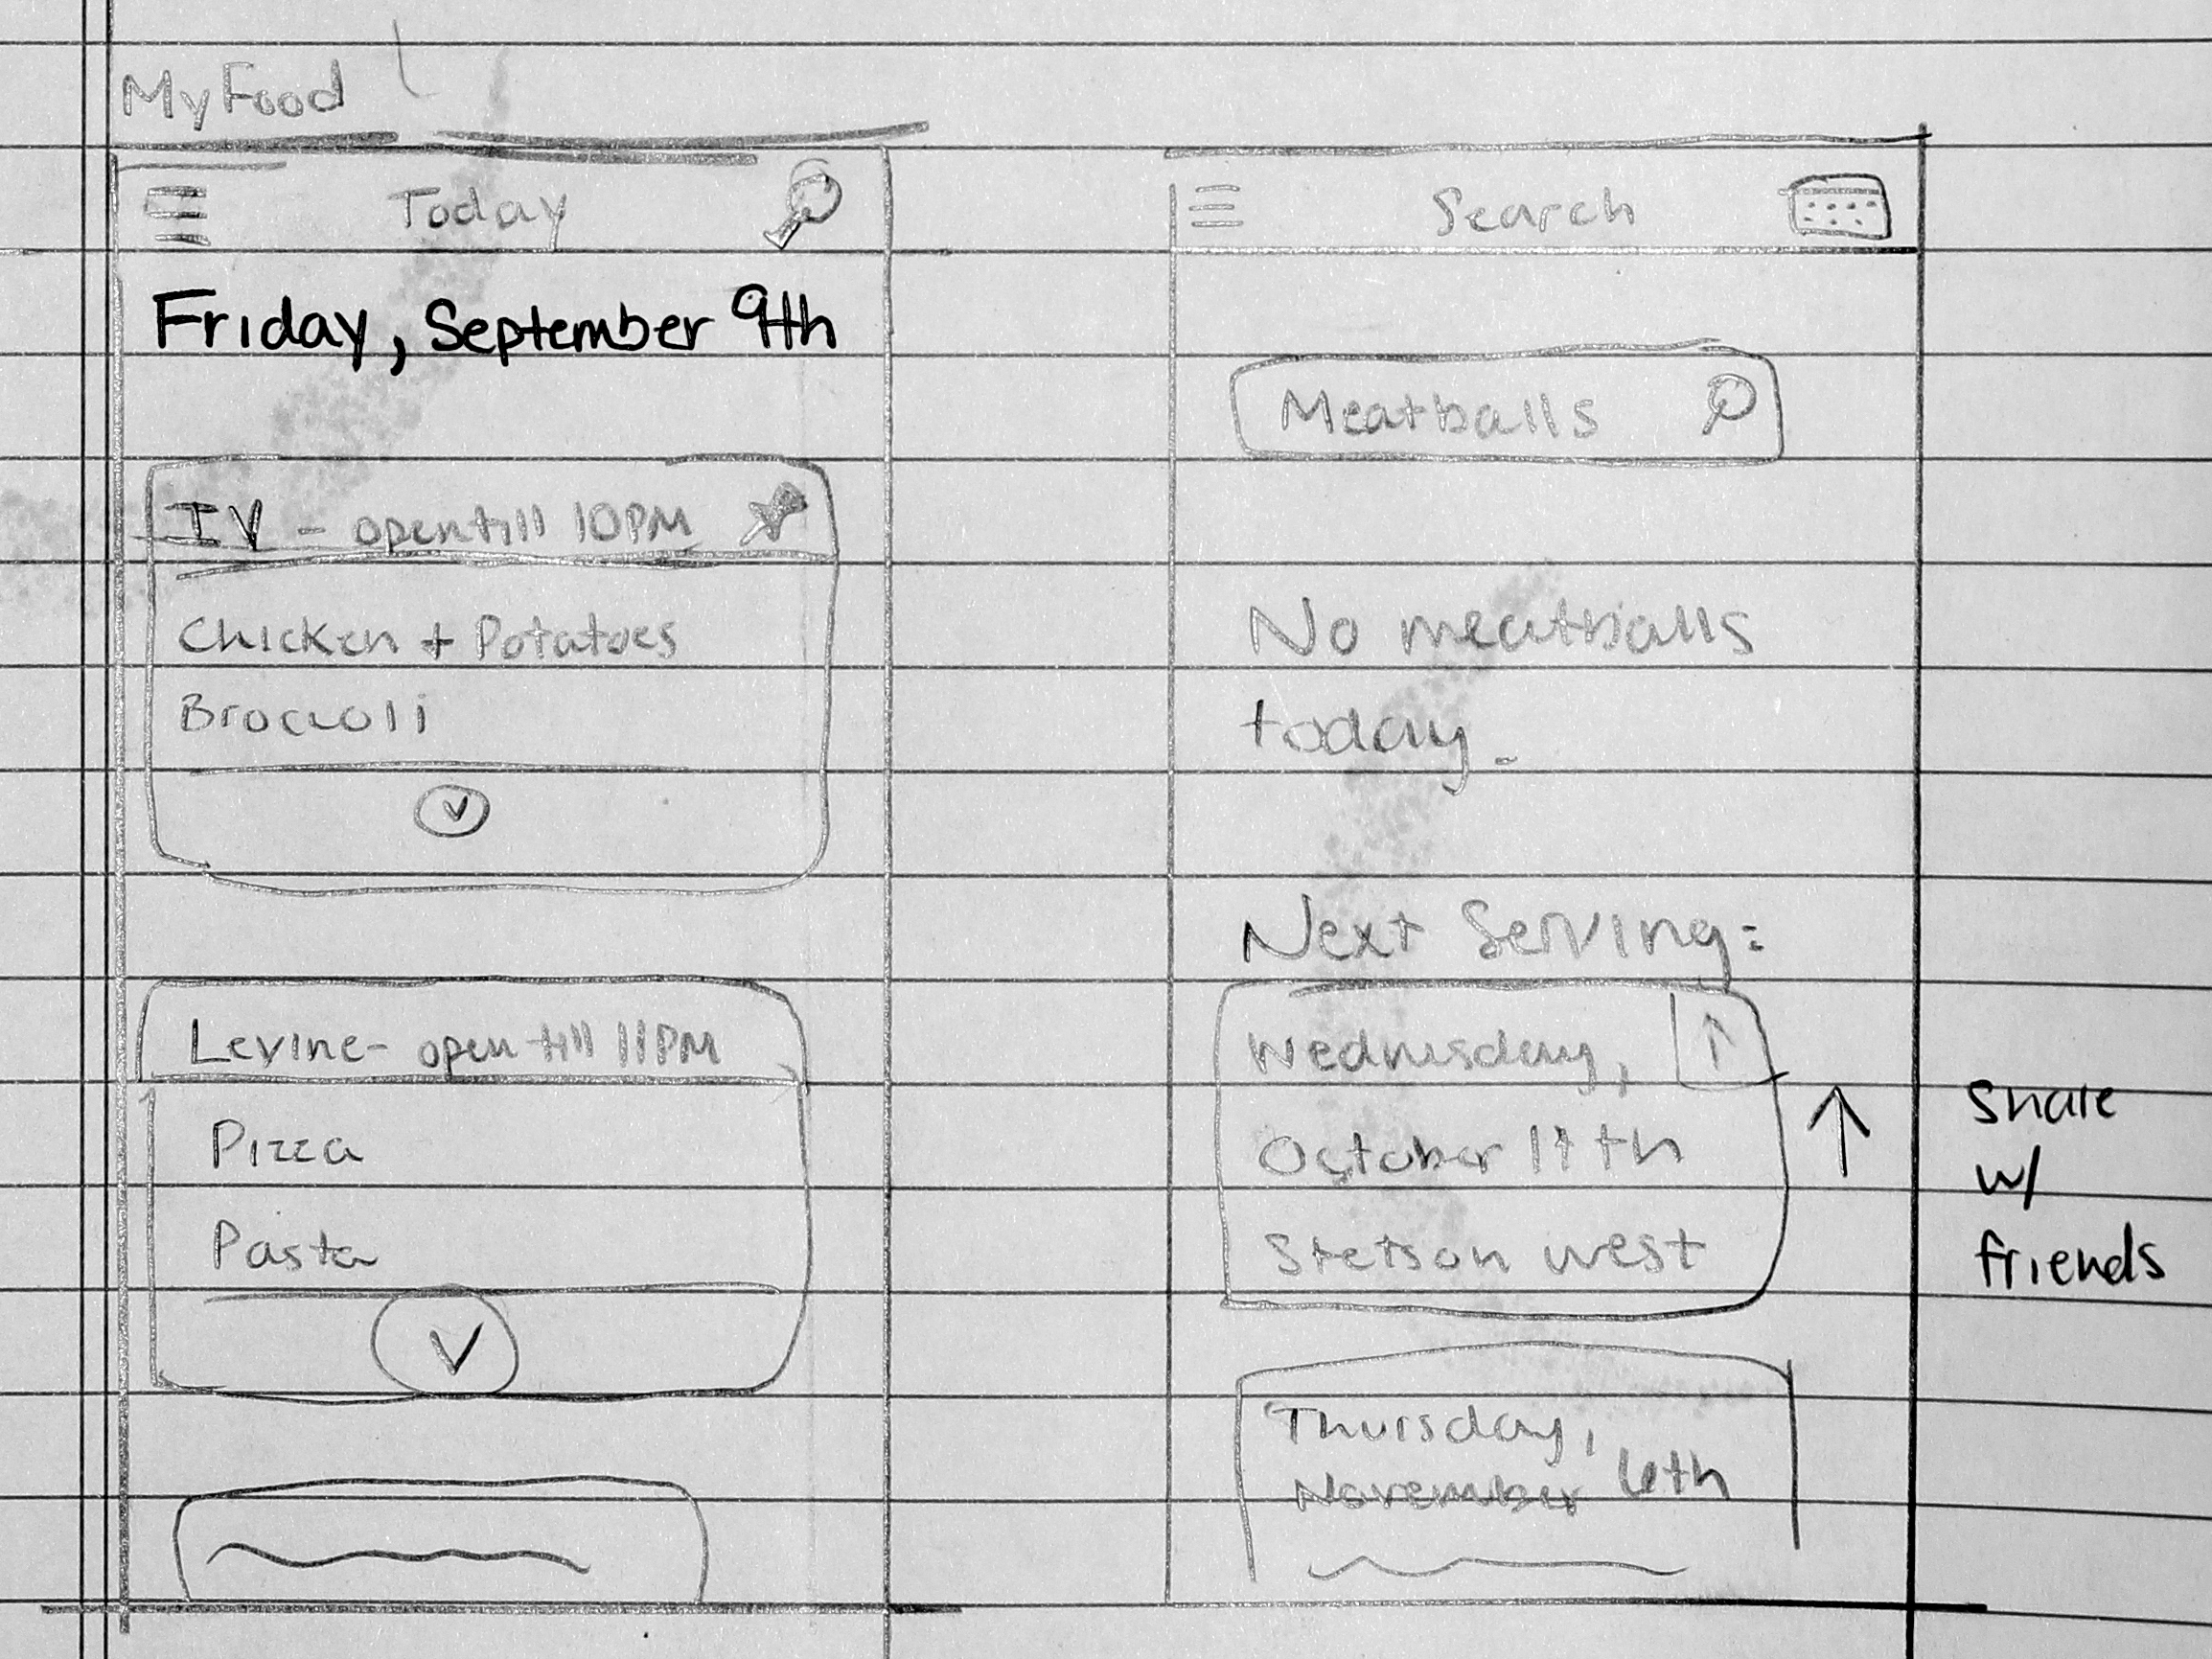 MyFood
Today
Friday, September 9th
IV - open till 10PM
Chicken + Potatoes
Broccoli
Levine- open till 11PM
Pizza
Pasta
Search
Meatballs
No meatballs
today.
Next Serving:
Wednesday,
October 11th
Stetson west
Thursday,
November 6th
Share
w/
friends